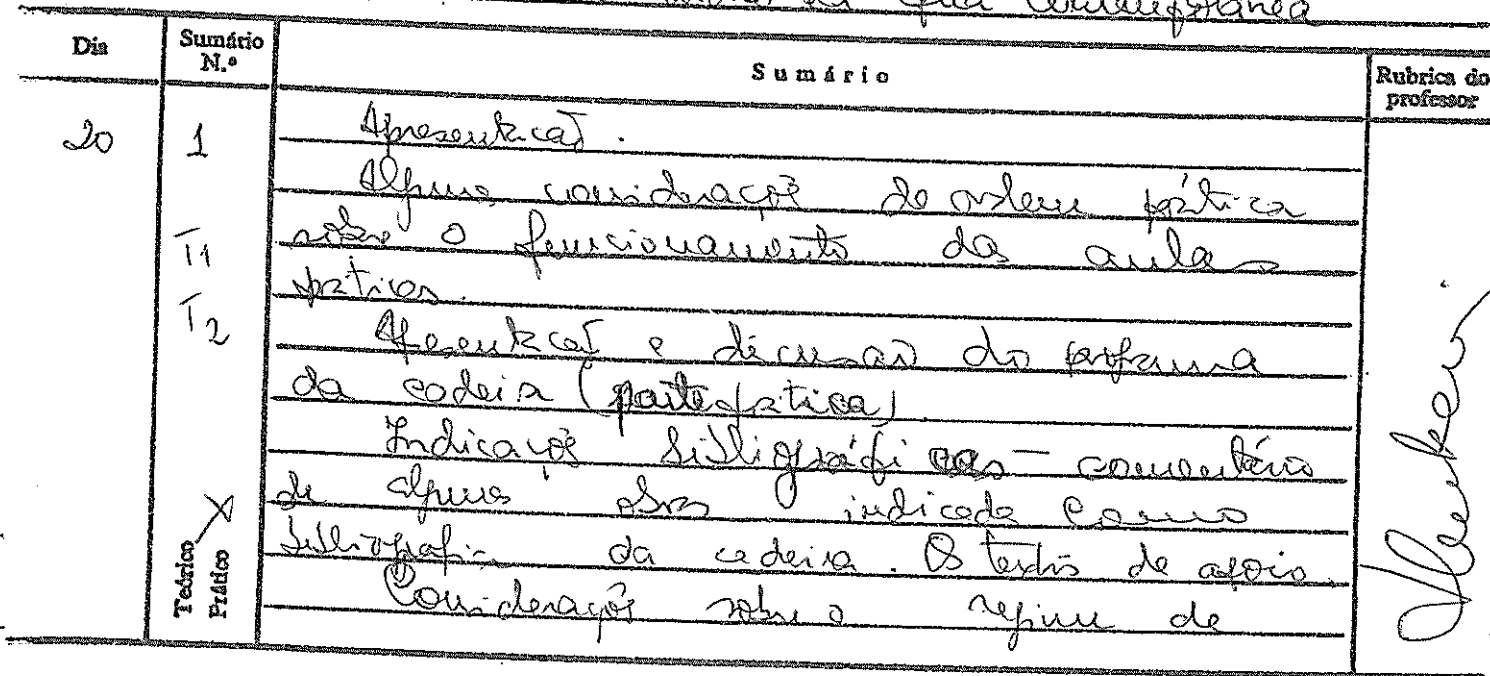 Contemporânea
Dia
Sumário N.º
Sumário
Rubrica do professor
20
1
Apresentação.
Algumas considerações de ordem prática
T1
sobre o funcionamento das aulas
práticas.
T2
Apresentação e discussão do programa
da cadeira (parte prática)
Indicações bibliográficas - comentário
de algumas obras indicadas como
bibliografia da cadeira. Os textos de apoio.
Considerações sobre o regime de
Teórico
Prático X